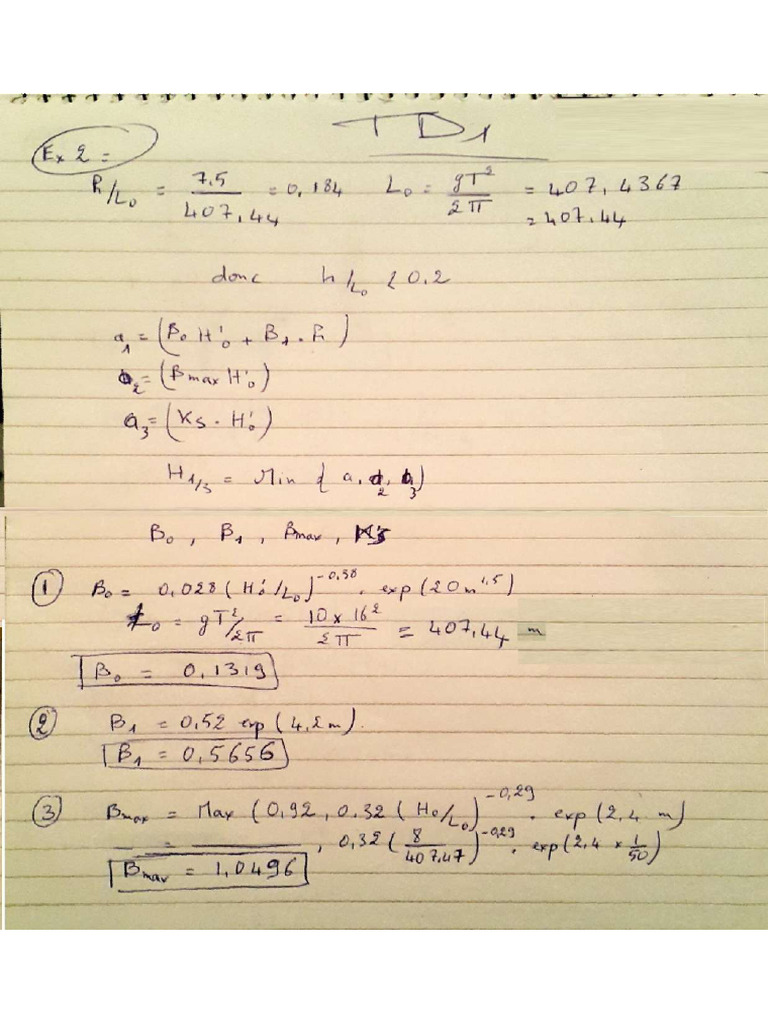 TD1
Ex 2 =
h/L₀ = 7.5 / 407.44 = 0,184 L₀ = gT² / 2π = 407,4367
= 407.44
donc h/L₀ < 0.2
a₁ = (B₀ H'₀ + B₁ . h)
a₂ = (Bmax H'₀)
a₃ = (Ks . H'₀)
H₁/₃ = Min { a, a₂, a₃ }
B₀ , B₁ , Bmax , Ks
① B₀ = 0,028 (H'₀/L₀)^-0.38 . exp(20m^1.5)
L₀ = gT²/2π = 10 × 16² / 2π = 407,44 m
B₀ = 0,1319
② B₁ = 0,52 exp(4,2m).
B₁ = 0,5656
③ Bmax = Max (0,92, 0.32 (H₀/L₀)^-0,29 . exp(2,4 m)
= , 0,32 (8 / 407.47)^-0,29 . exp(2,4 × 1/50)
Bmax = 1,0496